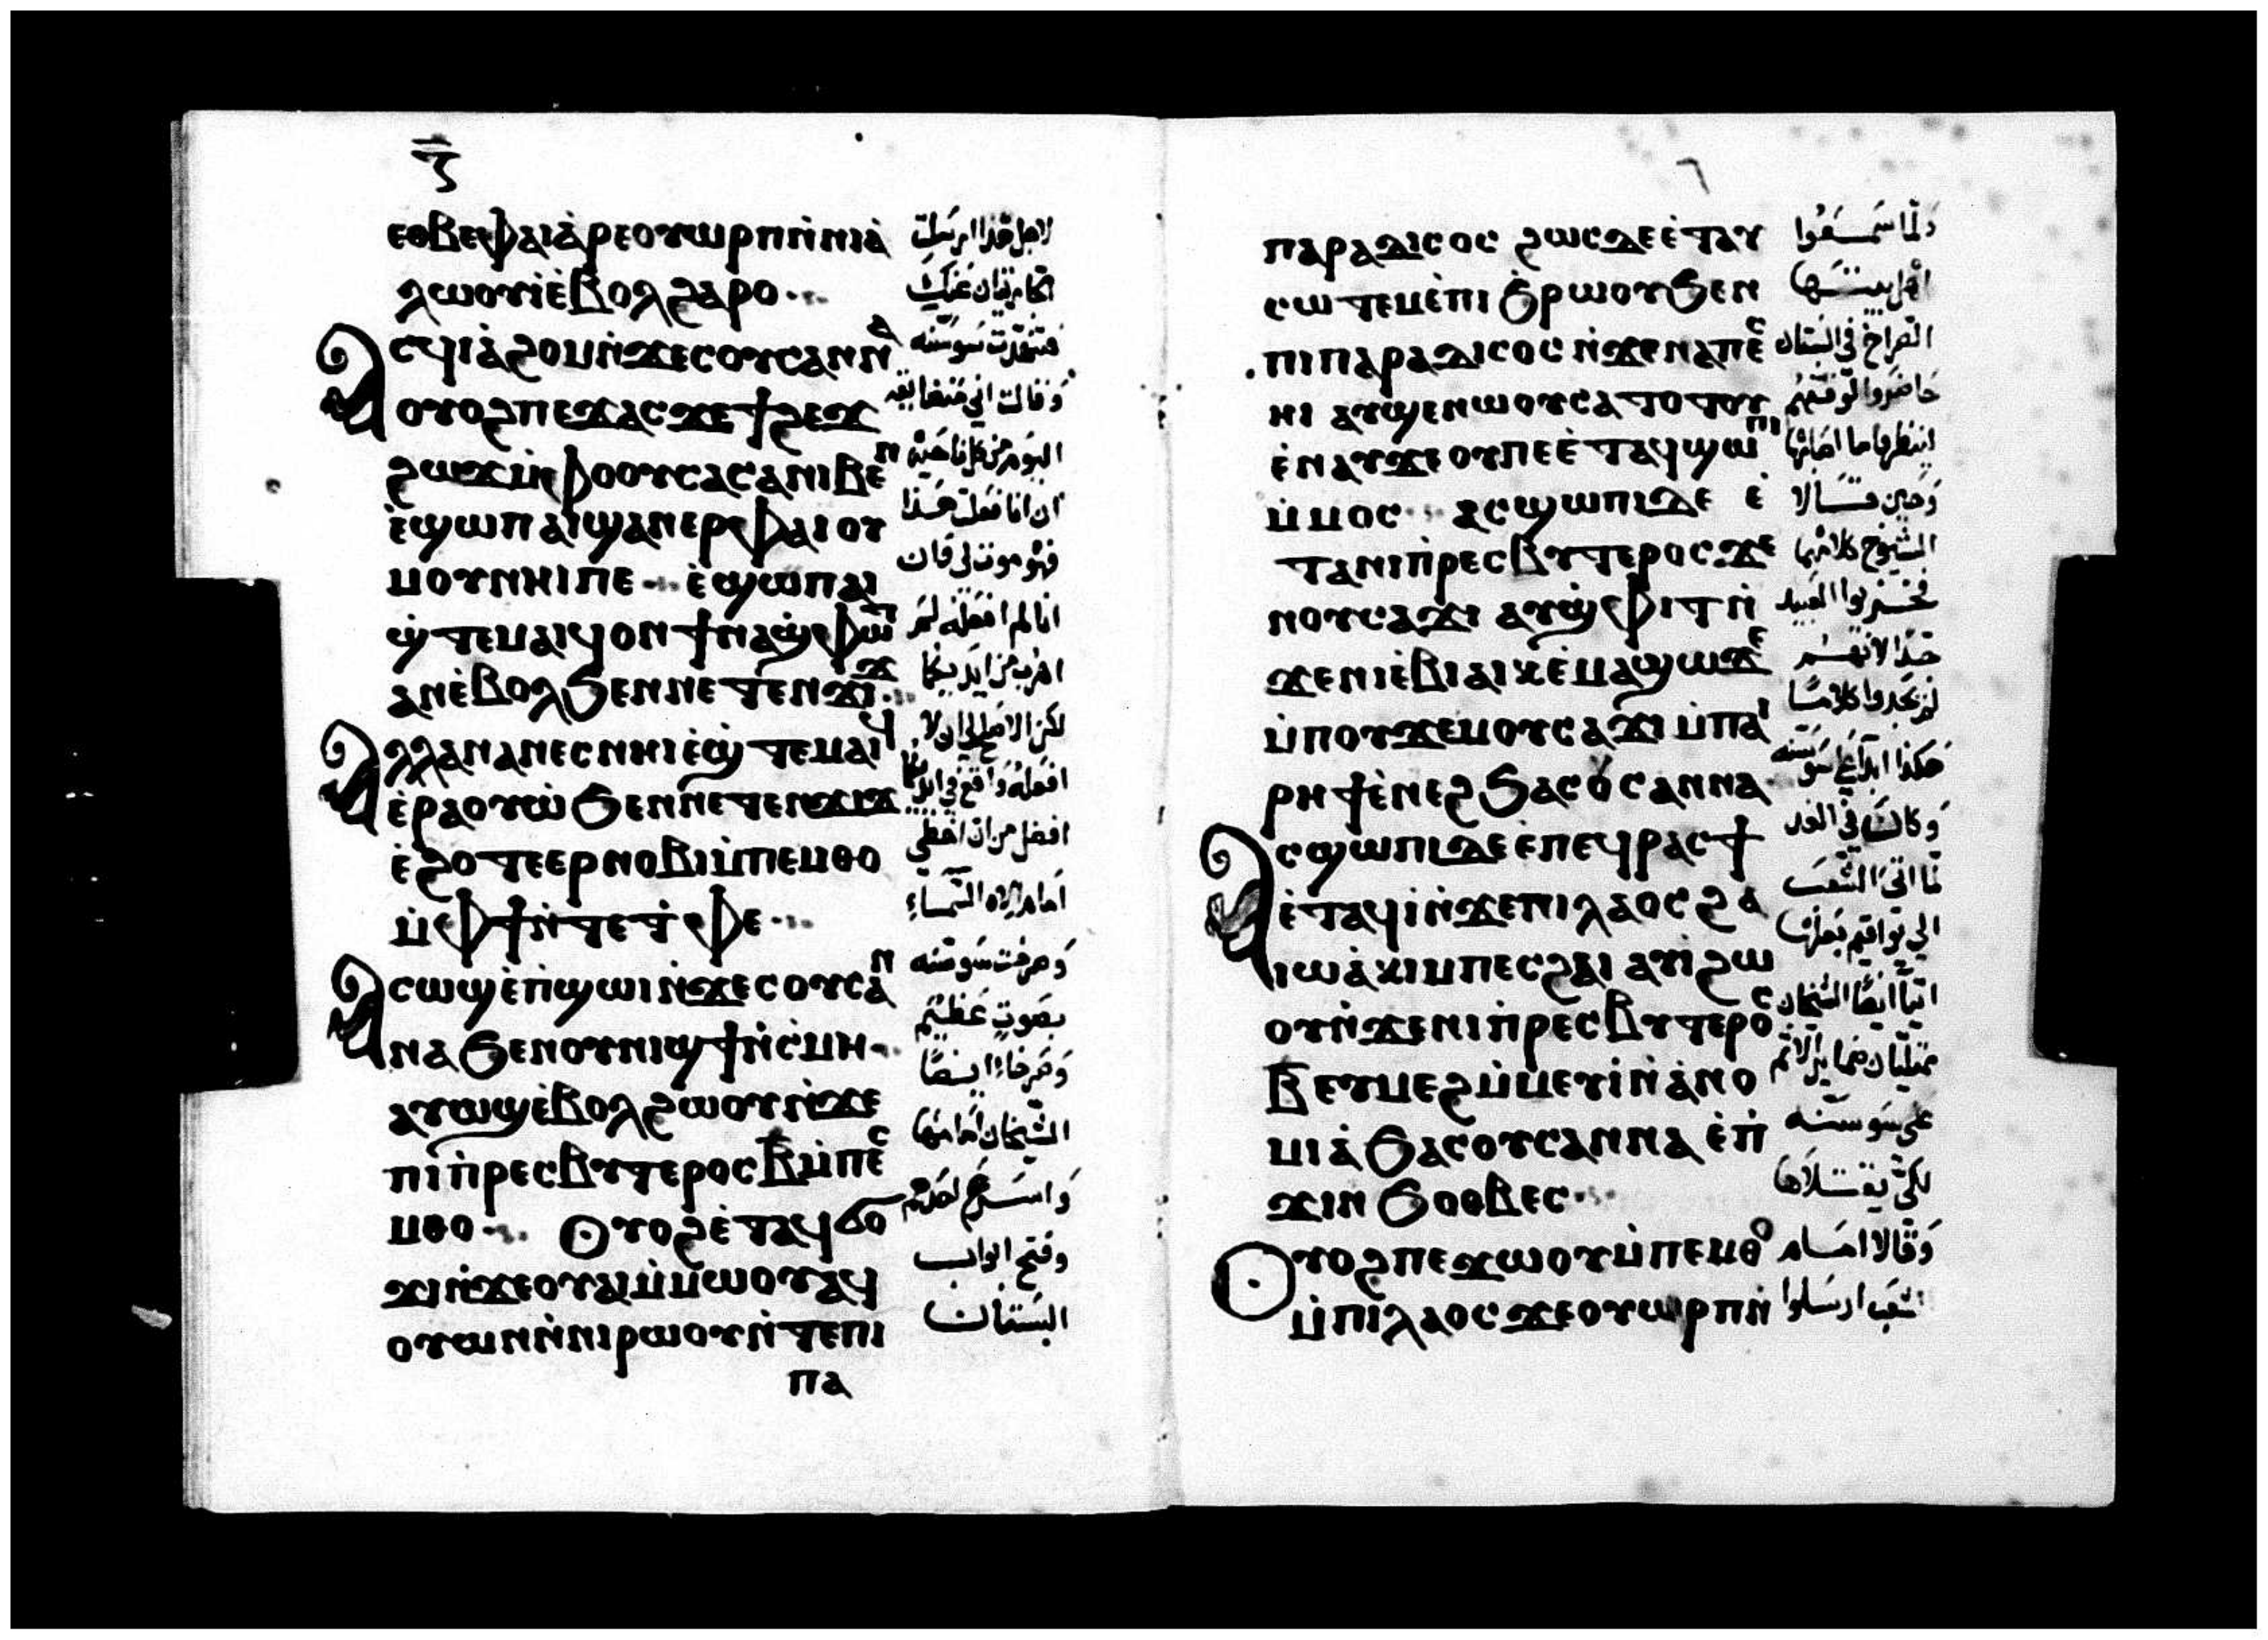 ⲋ̄
ⲉⲑⲃⲉⲫⲁⲓⲁ̀ⲣⲉⲟⲩⲱⲣⲡⲛ̀ⲛⲓⲁ̀
ⲗⲱⲟⲩⲓ̀ⲉ̀ⲃⲟⲗϩⲁⲣⲟ
ⲁⲥϥⲓⲁ̀ϩⲟⲙⲛ̀ϫⲉⲥⲟⲩⲥⲁⲛⲛⲁ
ⲟⲩⲟϩⲡⲉϫⲁⲥϫⲉϯϩⲉϫ
ϩⲱϫⲙ̀ⲫⲟⲟⲩⲥⲁⲥⲁⲛⲓⲃⲉⲛ
ⲉ̀ϣⲱⲡⲁⲓϣⲁⲛⲉⲣⲫⲁⲓⲟⲩ
ⲙⲟⲩⲛⲏⲓⲡⲉ ⲉ̀ϣⲱⲡⲁⲓ
ϣ̀ⲧⲉⲙⲁⲓϥⲟⲛϯⲛⲁϣ̀ⲫⲱⲧ
ⲁⲛⲉ̀ⲃⲟⲗϧⲉⲛⲛⲉⲧⲉⲛϫⲓϫ
ⲁⲗⲗⲁⲛⲁⲛⲉⲥⲛⲏⲓⲉ̀ϣ̀ⲧⲉⲙⲁⲓϥ
ⲉ̀ⲣⲁⲟⲩⲱ̀ϧⲉⲛⲛⲉⲧⲉⲛϫⲓϫ
ⲉ̀ϩⲟⲧⲉⲉⲣⲛⲟⲃⲓⲙ̀ⲡⲉⲙⲑⲟ
ⲙ̀ⲫϯⲛ̀ⲧⲉⲧ̀ⲫⲉ
ⲁⲥⲱϣⲉ̀ⲡ̀ϣⲱⲓⲛ̀ϫⲉⲥⲟⲩⲥⲁⲛ
ⲛⲁϧⲉⲛⲟⲩⲛⲓϣϯⲛ̀ⲥ̀ⲙⲏ
ⲁⲩⲱϣⲉ̀ⲃⲟⲗϩⲱⲟⲩⲛ̀ϫⲉ
ⲡⲓⲡ̀ⲣⲉⲥⲃⲩⲧⲉⲣⲟⲥⲃ̄ⲙ̀ⲡⲉⲥ
ⲙⲑⲟ ⲟⲩⲟϩⲉ̀ⲧⲁϥϭⲟ
ϫⲓⲛ̀ϫⲉⲟⲩⲁⲓⲙ̀ⲙⲱⲟⲩⲁϥ
ⲟⲩⲱⲛⲛ̀ⲛⲓⲣⲱⲟⲩⲛ̀ⲧⲉⲡⲓ
ⲡⲁ
لاجل هذا ارسلت
فتنهدت سوسنه
وقالت اني متضايقه
اليوم من كل ناحيه
ان انا فعلت هذا
فهو موت لي فان
انا لم افعله لم
اهرب من ايديكما
افضل من ان اخطي
امام الاه السماء
وصرخت سوسنه
بصوت عظيم
وصرخا ايضا
الشيخان امامها
وفتح ابواب
البستان
ⲡⲁⲣⲁⲇⲓⲥⲟⲥ ϩⲱⲥⲇⲉⲉ̀ⲧⲁⲩ
ⲥⲱⲧⲉⲙⲉ̀ⲡⲓϧ̀ⲣⲱⲟⲩϧⲉⲛ
ⲡⲓⲡⲁⲣⲁⲇⲓⲥⲟⲥⲛ̀ϫⲉⲛⲁⲡⲉⲥ
ⲏⲓ ⲁⲩϣⲉⲛⲱⲟⲩⲥⲁⲧⲟⲧⲟⲩ
ⲉ̀ⲛⲁⲩϫⲉⲟⲩⲡⲉⲉ̀ⲧⲁϥϣⲱⲡⲓ
ⲙ̀ⲙⲟⲥ ⲁⲥϣⲱⲡⲓⲇⲉ ⲉ̀
ⲧⲁⲛⲓⲡ̀ⲣⲉⲥⲃⲩⲧⲉⲣⲟⲥϫⲉ
ⲛⲟⲩⲥⲁϫⲓ ⲁⲩϣ̀ⲫⲓⲧⲛ̀
ϫⲉⲛⲓⲉ̀ⲃⲓⲁⲓⲕⲉ̀ⲙⲁϣⲱϫⲉ
ⲙ̀ⲡⲟⲩϫⲉⲙⲟⲩⲥⲁϫⲓ ⲙ̀ⲡⲁⲓ
ⲣⲏϯⲉ̀ⲛⲉϩϧⲁⲥⲟⲩⲥⲁⲛⲛⲁ
ⲁⲥϣⲱⲡⲓⲇⲉⲉ̀ⲡⲉϥⲣⲁⲥϯ
ⲉ̀ⲧⲁϥⲓ̀ⲛ̀ϫⲉⲡⲓⲗⲁⲟⲥϩⲁ
ⲓⲱⲁ̀ⲕⲓⲙⲡⲉⲥϩⲁⲓ ⲁⲩⲓ̀ϩⲱ
ⲟⲩⲛ̀ϫⲉⲛⲓⲡ̀ⲣⲉⲥⲃⲩⲧⲉⲣⲟⲥ
ⲃ̄ⲉⲩⲙⲉϩⲙ̀ⲙⲉⲩⲓ̀ⲛ̀ⲁ̀ⲛⲟ
ⲙⲓⲁ̀ϧⲁⲥⲟⲩⲥⲁⲛⲛⲁ ⲉ̀ⲡ̀
ϫⲓⲛϧⲟⲑⲃⲉⲥ
ⲟⲩⲟϩⲡⲉϫⲱⲟⲩⲙ̀ⲡⲉⲙⲑⲟ
ⲙ̀ⲡⲓⲗⲁⲟⲥϫⲉⲟⲩⲱⲣⲡⲛ̀
ولما سمعوا
اهل بيتها
الصراخ في البستان
لينظروا ما اصابها
وحين قالا
الشيوخ كلامهما
جدا لانهم
لم يجدوا كلاما
هكذا ابدا على سوسنه
وكان في الغد
لما اتى الشعب
الى يواقيم بعلها
اتيا ايضا الشيخان
على سوسنه
لكي يقتلاها
وقالا امام
الشعب ارسلوا